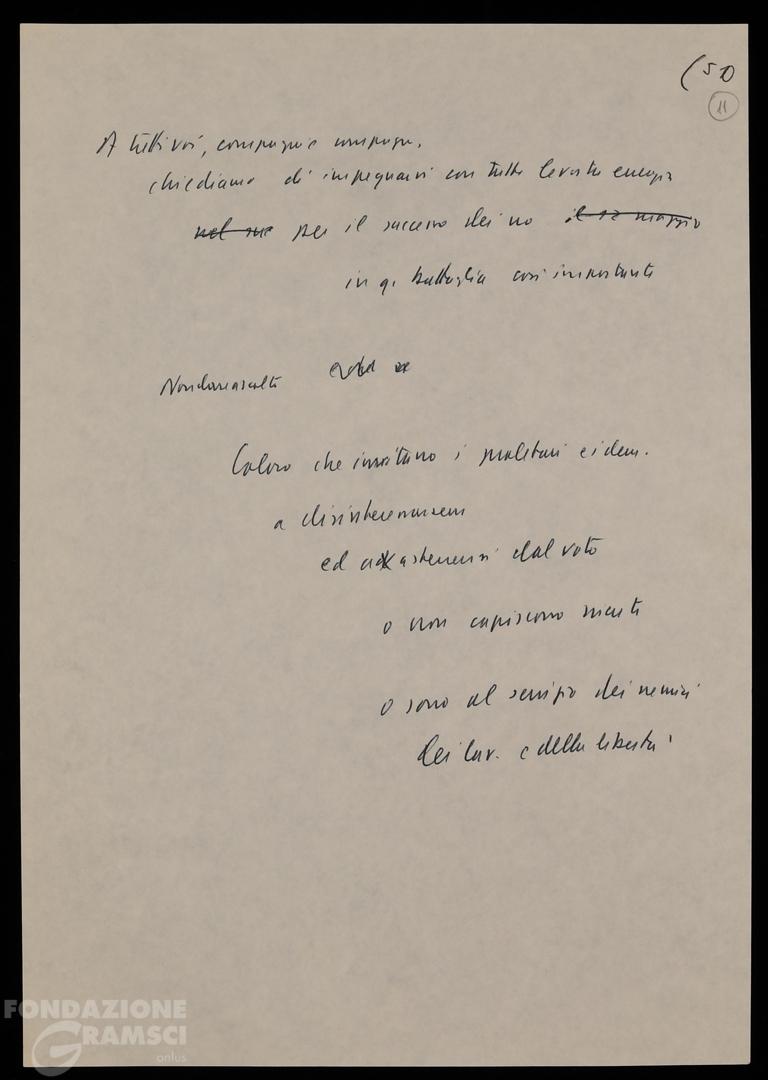 (50
11
A tutti voi, compagni e compagne,
chiediamo di impegnarvi con tutte le vostre energie
nel per il successo dei no il 12 maggio
in q. battaglia così importante
Non dare ascolto
Coloro che invitano i proletari e i dem.
a disinteressarsi
ed astenersi dal voto
o non capiscono niente
o sono al servizio dei nemici
dei lav. e della libertà
FONDAZIONE
GRAMSCI
onlus